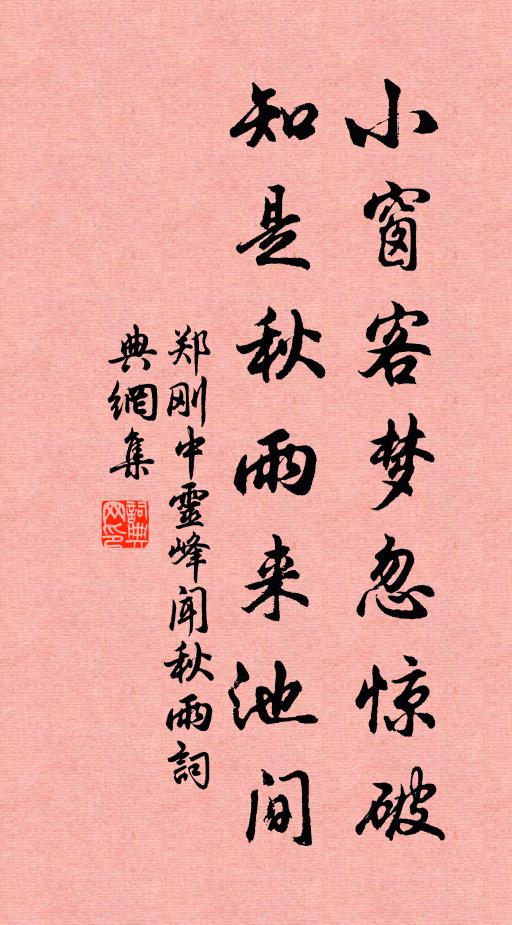 小窗客梦忽惊破
知是秋雨来池间
郑刚中靈峰闻秋雨詞
典網集
詞典网印